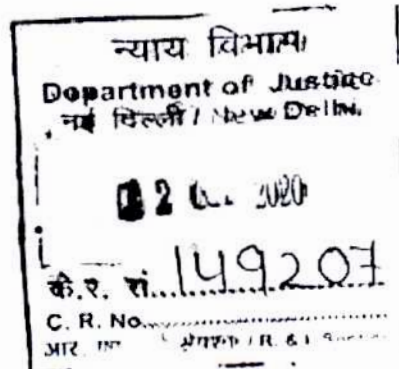 न्याय विभाग
Department of Justice
नई दिल्ली / New Delhi
2 2020
के.र. सं. 149207
C. R. No.
आर. / R. & I.